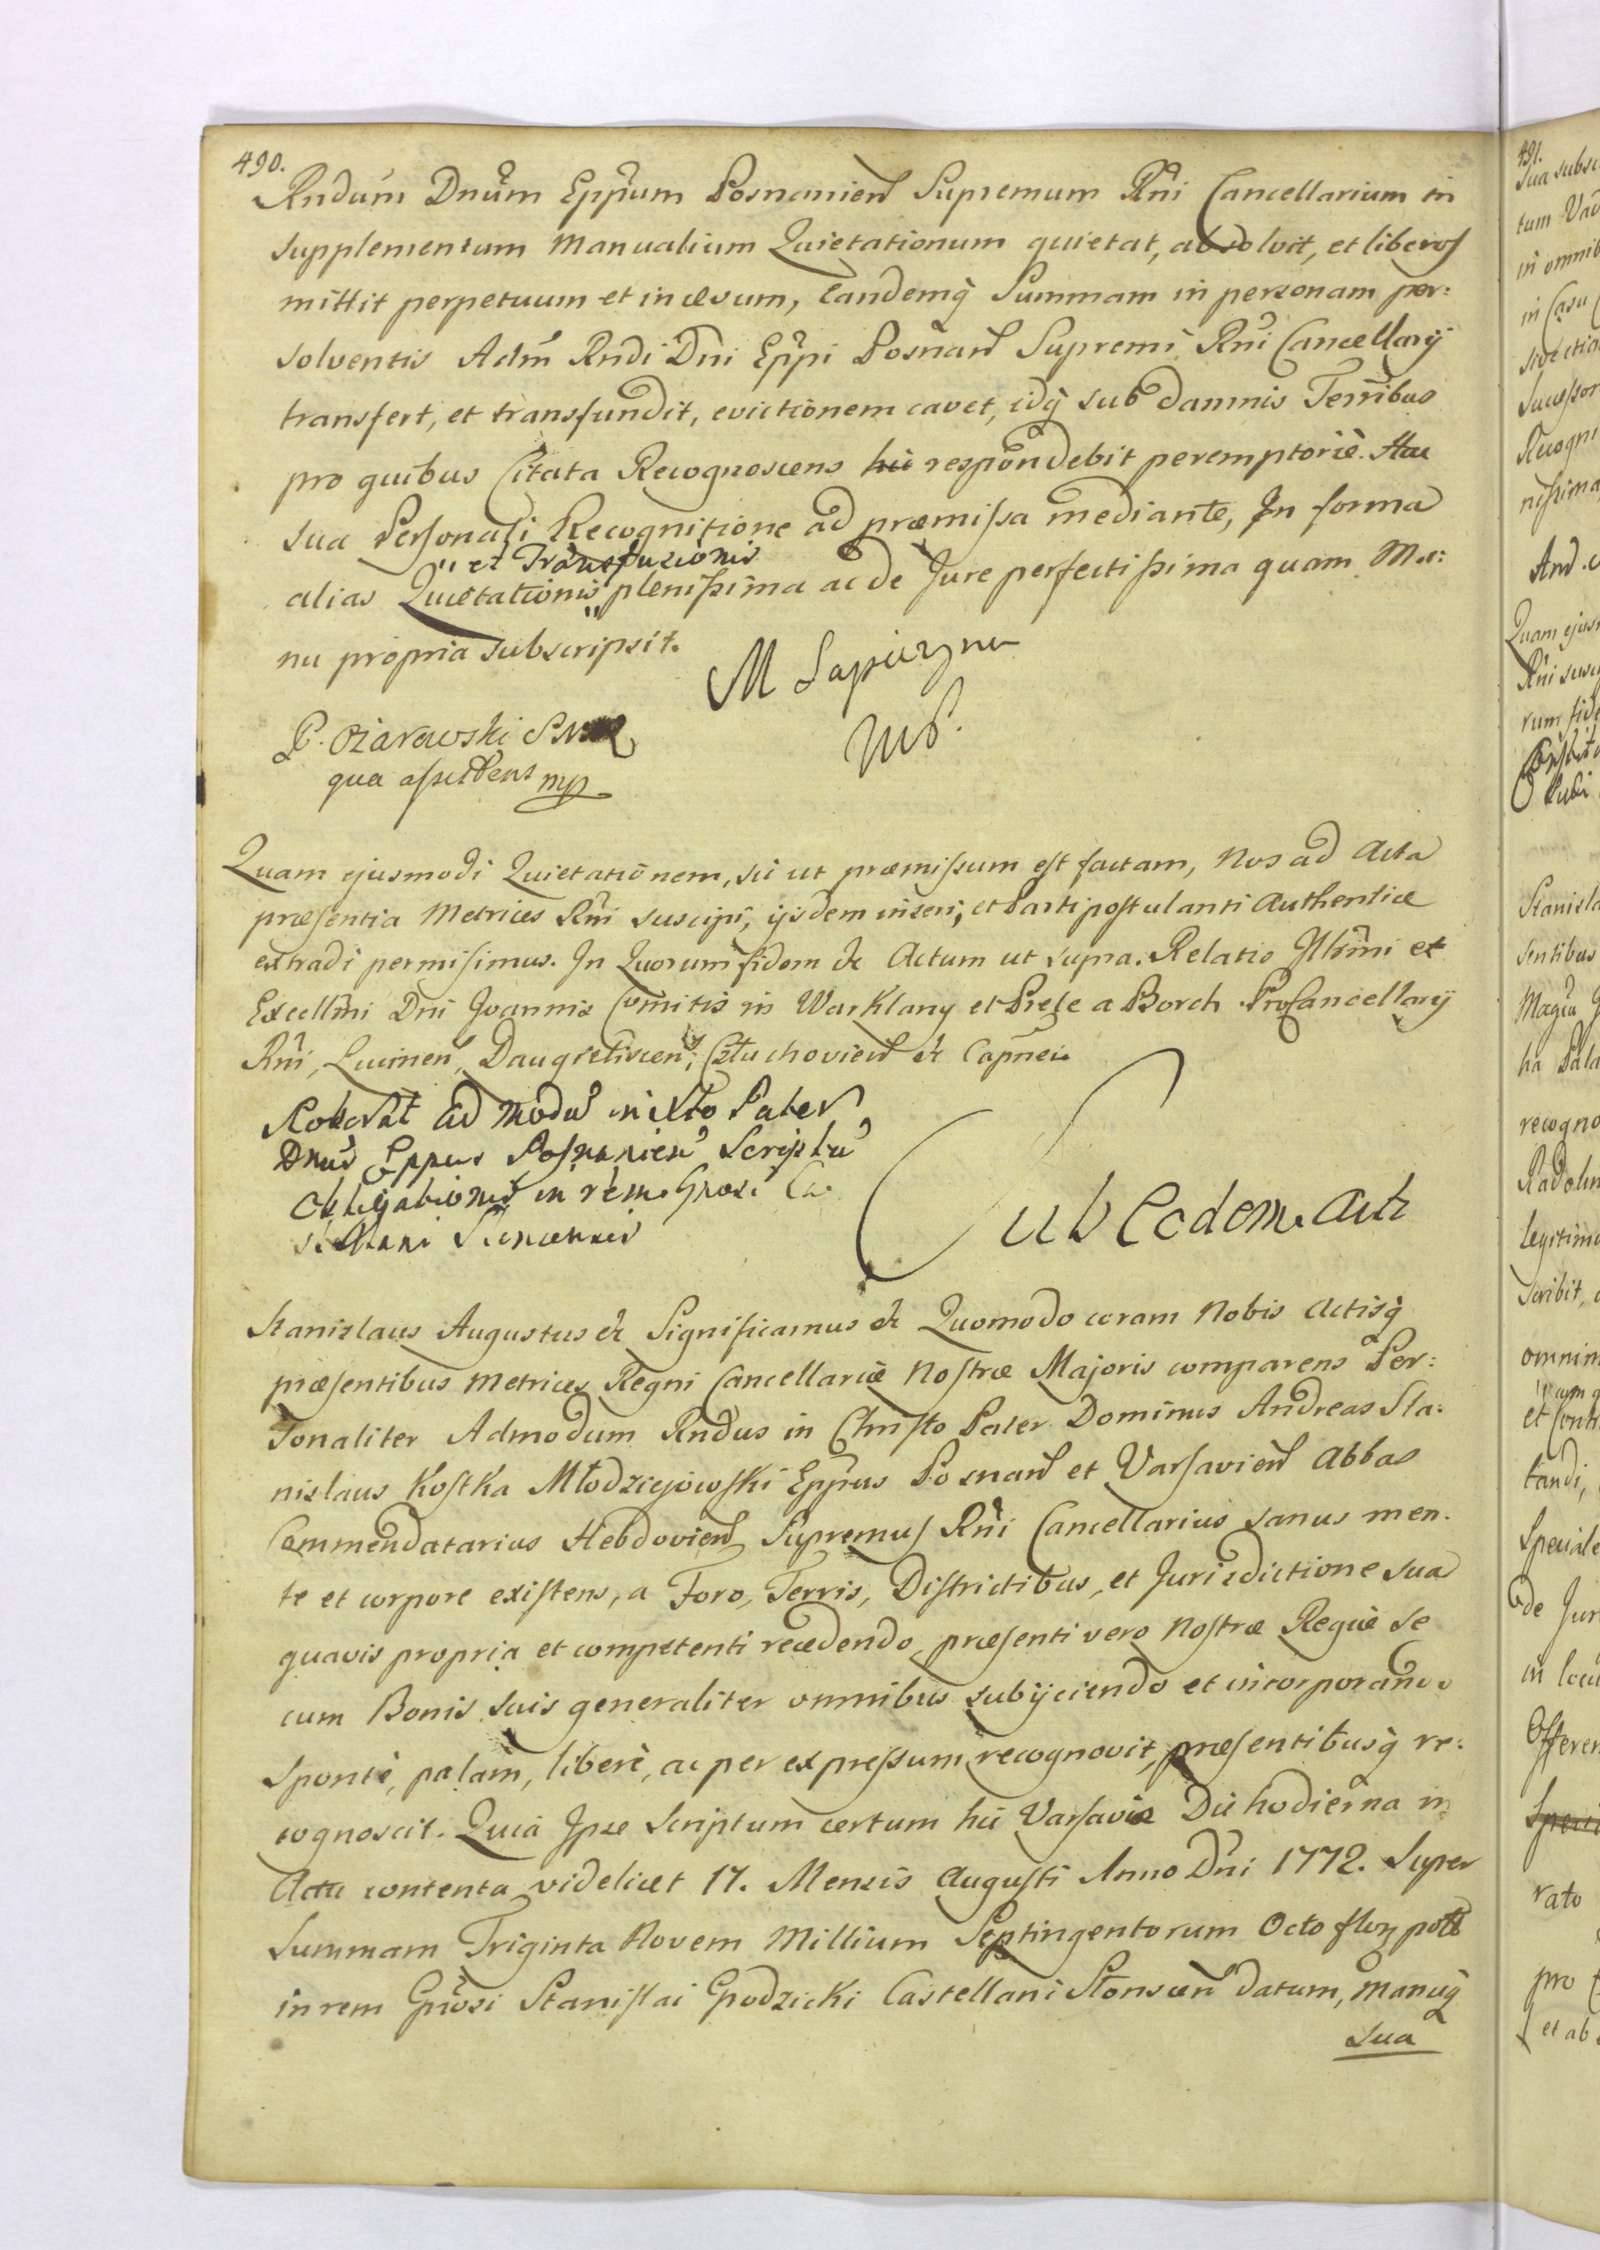 490.
Rndum Dnum Eppum Posnanien Supremum Rni Cancellarium in
supplementum Manualium Quietationum quietat, absolvit, et liberos
mittit perpetuum et in ævum, eandemq Summam in personam per:
solventis Adm Rndi Dni Eppi Posnan Supremi Rni Cancellarij
transfert, et transfundit, evictionem cavet, idq sub damnis Terribus
pro quibus Citata Recognoscens hic respondebit peremptorie. Hac
sua Personali Recognitione ad præmissa mediante, In forma
" et Transfusionis
alias Quietationis " plenissima ac de Jure perfectissima quam Ma:
nu propria subscripsit.
M Sapiezyna
mp.
P. Ożarowski
qua assistens mp
Quam ejusmodi Quietationem, sic ut præmissum est factam, Nos ad Acta
præsentia Metrices Rni suscipi, ijsdem inseri, et Parti postulanti Authentice
extradi permisimus. In Quorum fidem &c Actum ut supra. Relatio Illmi et
Excellmi Dni Joannis Comitis in Warklany et Prele a Borch ProCancellarij
Rni, Lucinen, Daugieliscen, Człuchovien &c Capnei
Roborat Ad modu in Xto Pater
Dnus Eppus Posnanien Scriptu
Obligationis in rem Grosi Ca
stellani
Sub Eodem Actu
Stanislaus Augustus &c Significamus &c Quomodo coram Nobis Actisq
præsentibus Metrices Regni Cancellariæ Nostræ Majoris comparens Per:
sonaliter Admodum Rndus in Christo Pater Dominus Andreas Sta:
nislaus Kostka Młodziejowski Eppus Posnan et Varsavien Abbas
Commendatarius Hebdovien Supremus Rni Cancellarius sanus men:
te et corpore existens, a Foro, Terris, Districtibus, et Jurisdictione sua
quavis propria et competenti recedendo, præsenti vero Nostræ Regiæ se
cum Bonis suis generaliter omnibus subijciendo et incorporando
sponte, palam, libere, ac per expressum recognovit, præsentibusq re:
cognoscit. Quia Ipse Scriptum certum hic Varsaviæ Die hodierna in
Actu contenta videlicet 17. Mensis Augusti Anno Dni 1772. Super
Summam Triginta Novem Millium Septingentorum Octo flor poll
in rem Grosi Stanislai Grodzicki Castellani Słonscen datum, Manuq
sua